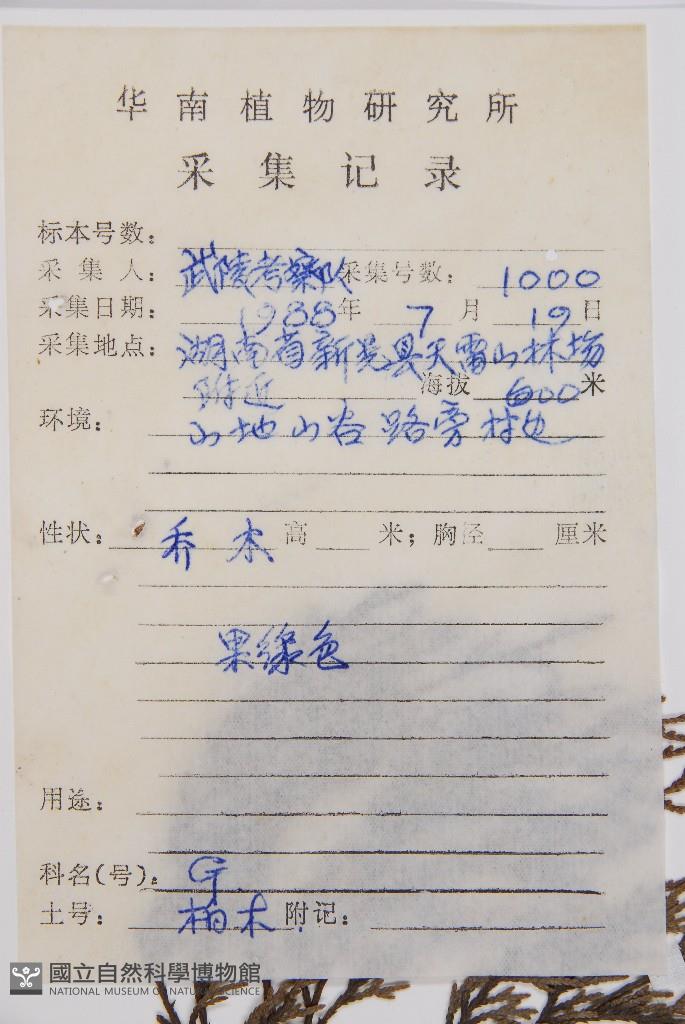 华南植物研究所
采集记录
标本号数：
采集人：武陵考察队 采集号数：1000
采集日期：1988年 7月 19日
采集地点：湖南省新晃县天雷山林场
附近 海拔 600米
环境：山地山谷路旁林边
性状：乔木 高 米；胸径 厘米
果绿色
用途：
科名(号)：G
土号：柏木 附记：
國立自然科學博物館
NATIONAL MUSEUM OF NATURAL SCIENCE